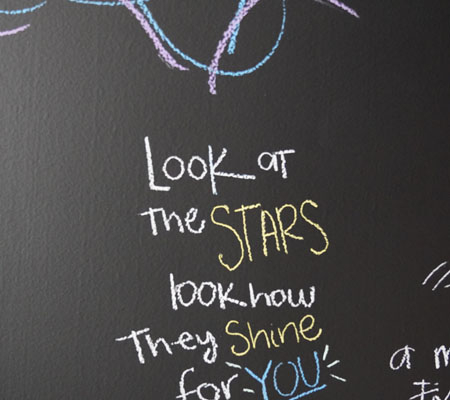 Look at
The STARS
look how
They Shine
for YOU
a m